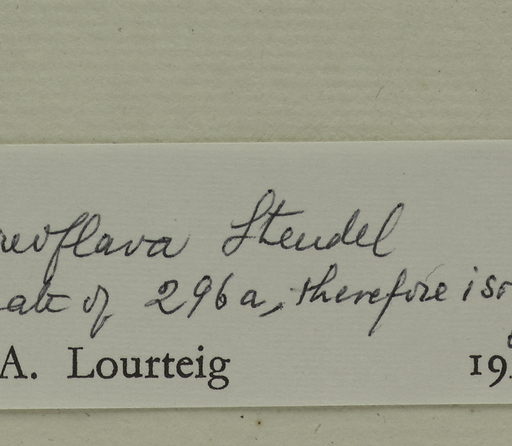 reoflava Steudel
ate of 296a, therefore iso
A. Lourteig 19